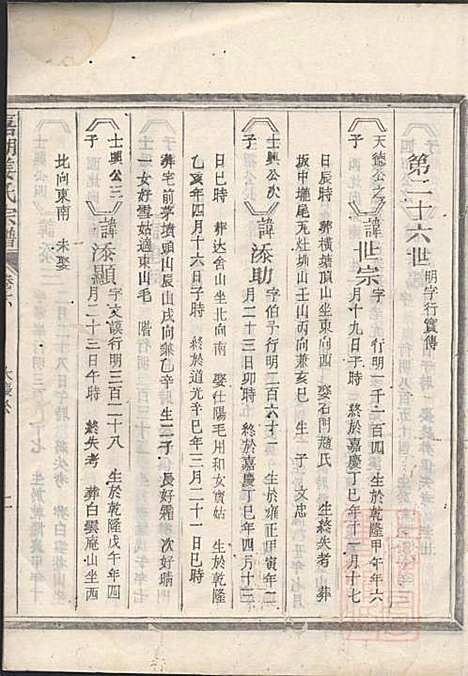 第二十六世 明字行實傳
天德公之子 諱世宗 字 行明一千一百四 生於乾隆甲午年六月十九日子時 終於嘉慶丁巳年十二月十七
日辰時 葬橫塘頂山坐東向西 娶石門趙氏 生終失考 葬
坂中壠尾天灶塆山壬山丙向兼亥巳 生一子 文忠
士興公次子 諱添助 字伯予 行明二百六十一 生於雍正甲寅年二月二十三日卯時 終於嘉慶丁巳年四月十三
日巳時 葬达舍山坐北向南 娶仕陽毛州和女寶姑 生於乾隆
乙亥年四月十六日子時 終於道光辛巳年三月二十一日巳時
葬宅前茅墳頭山辰山戌向兼乙辛 生二子 長好霜 次好瑞
一女好雪姑適東山毛
士興公三子 諱添顯 字文謨 行明三百二十八 生於乾隆戊午年四月二十三日午時 終失考 葬白雲庵山坐西
比向東南 未娶
姜氏宗譜